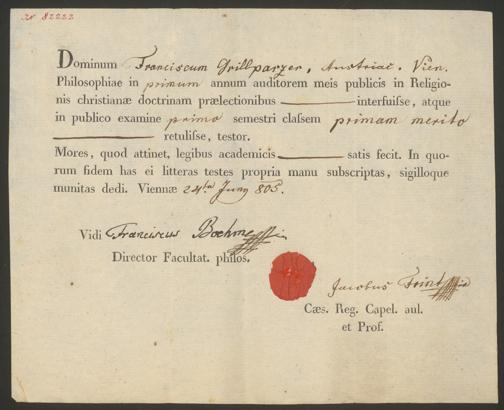 № 82222
Dominum Franciscum Grillparzer, Austriac. Vien.
Philosophiae in primum annum auditorem meis publicis in Religio-
nis christianæ doctrinam prælectionibus ——— interfuiſse, atque
in publico examine primo semestri claſsem primam merito
——— retuliſse, testor.
Mores, quod attinet, legibus academicis ——— satis fecit. In quo-
rum fidem has ei litteras testes propria manu subscriptas, sigilloque
munitas dedi. Viennæ 24ta Juny 805.
Vidi Franciscus Boehme
Director Facultat. philos.
Jacobus Frint
Cæs. Reg. Capel. aul.
et Prof.